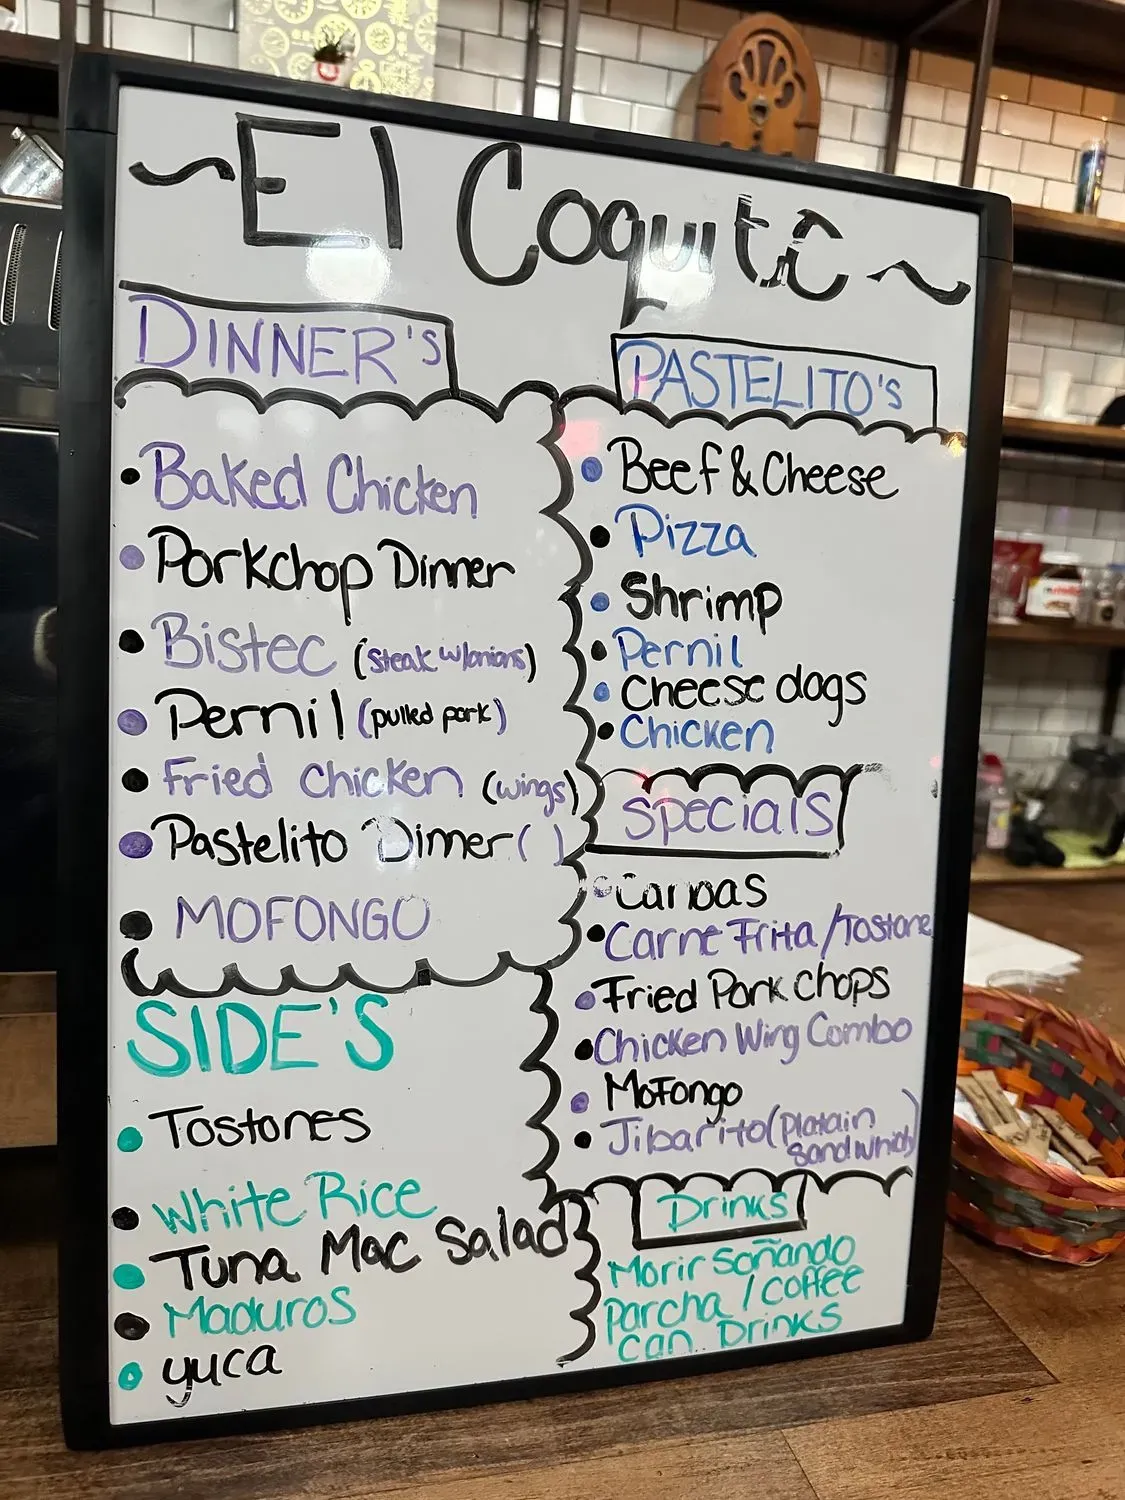 ~El Coquito~
DINNER'S
• Baked Chicken
• Porkchop Dinner
• Bistec (steak w/onions)
• Pernil (pulled pork)
• Fried Chicken (wings)
• Pastelito Dinner ( )
• MOFONGO
SIDE'S
• Tostones
• White Rice
• Tuna Mac Salad
• Maduros
• yuca
PASTELITO'S
• Beef & Cheese
• Pizza
• Shrimp
• Pernil
• Cheese dogs
• Chicken
Specials
• Carne Frita /Tostone
• Fried Pork Chops
• Chicken Wing Combo
• Mofongo
• Jibarito (Platain
sandwhich)
Drinks
Morir Soñando
Parcha / Coffee
Can Drinks